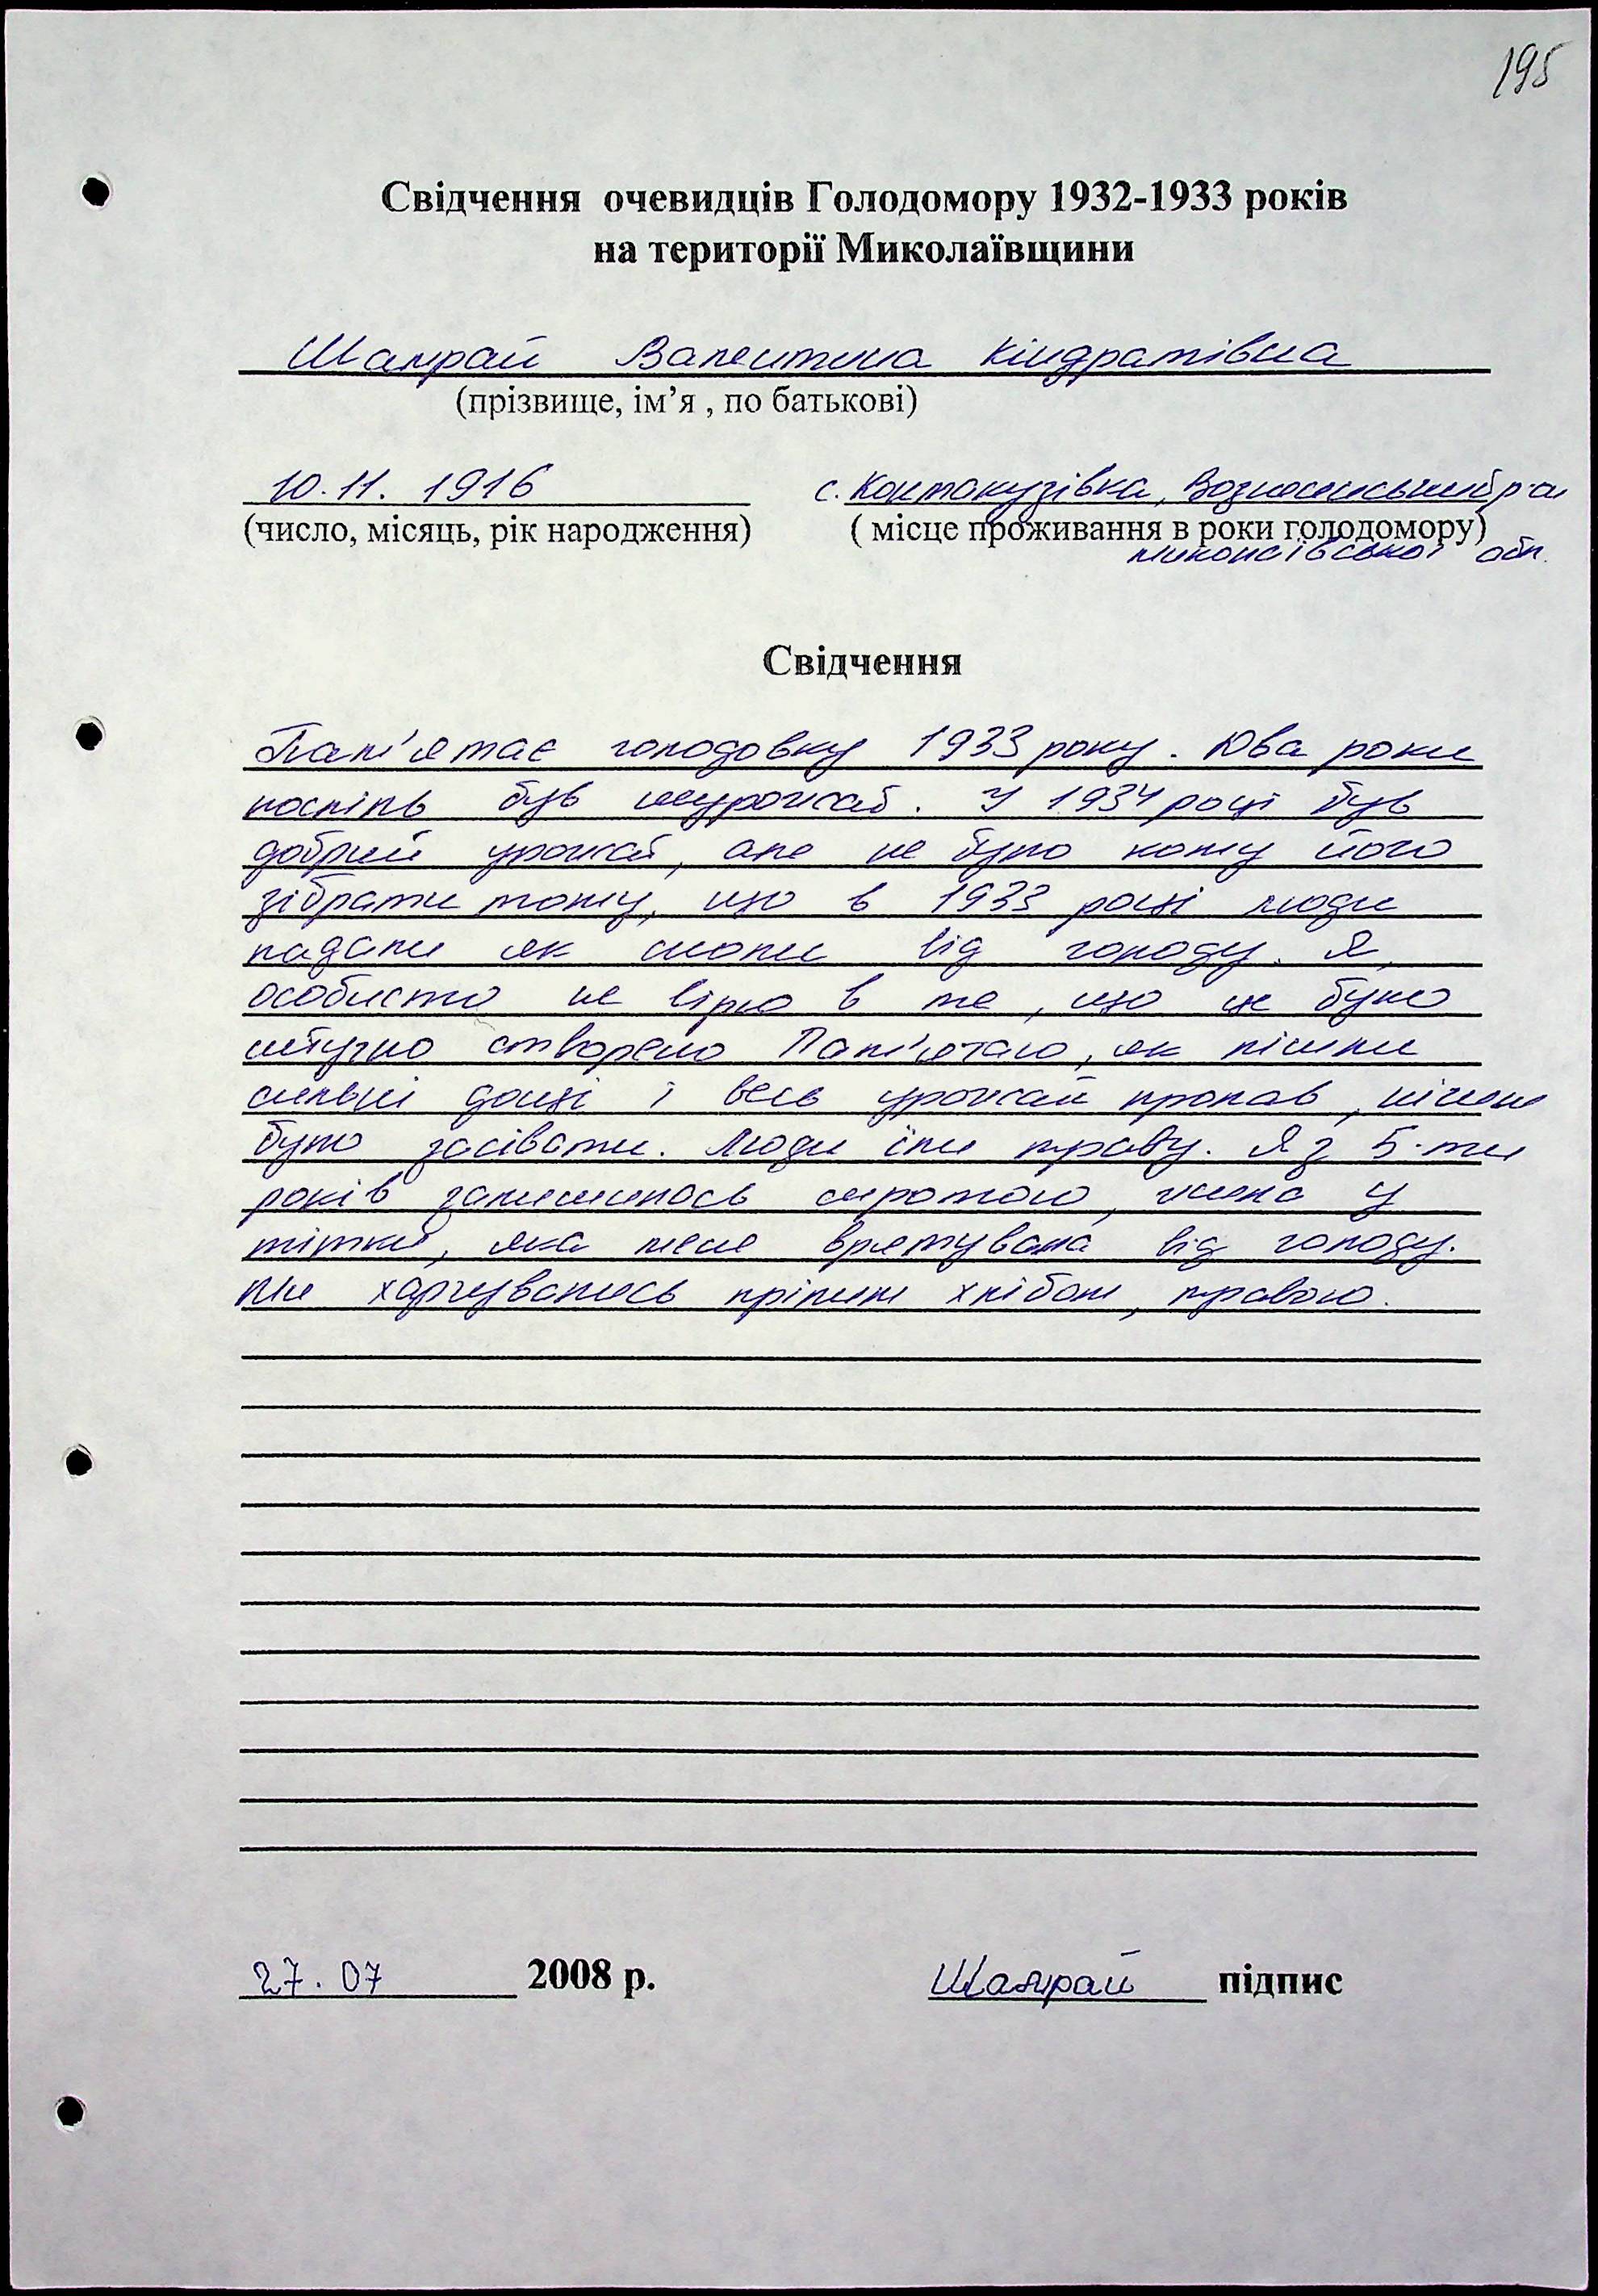 195
Свідчення очевидців Голодомору 1932-1933 років
на території Миколаївщини
Шамрай Валентина Кіндратівна
(прізвище, ім’я , по батькові)
10.11. 1916 с. Контакузівка, Вознесенський р-н
(число, місяць, рік народження) ( місце проживання в роки голодомору)
Миколаївської обл.
Свідчення
Пам'ятає голодовку 1933 року. Два роки
поспіль був неурожай. У 1934 році був
добрий урожай, але не було кому його
зібрати тому, що в 1933 році люди
падали як снопи від голоду. Я,
особисто не вірю в те, що це було
штучно створено Пам'ятаю, як пішли
сильні дощі і весь урожай пропав, нічим
було засівати. Люди їли траву. Я з 5-ти
років залишилась сиротою, жила у
тітки, яка мене врятувала від голоду.
Ми харчувались прілим хлібом, травою.
27.07 2008 р. Шамрай підпис